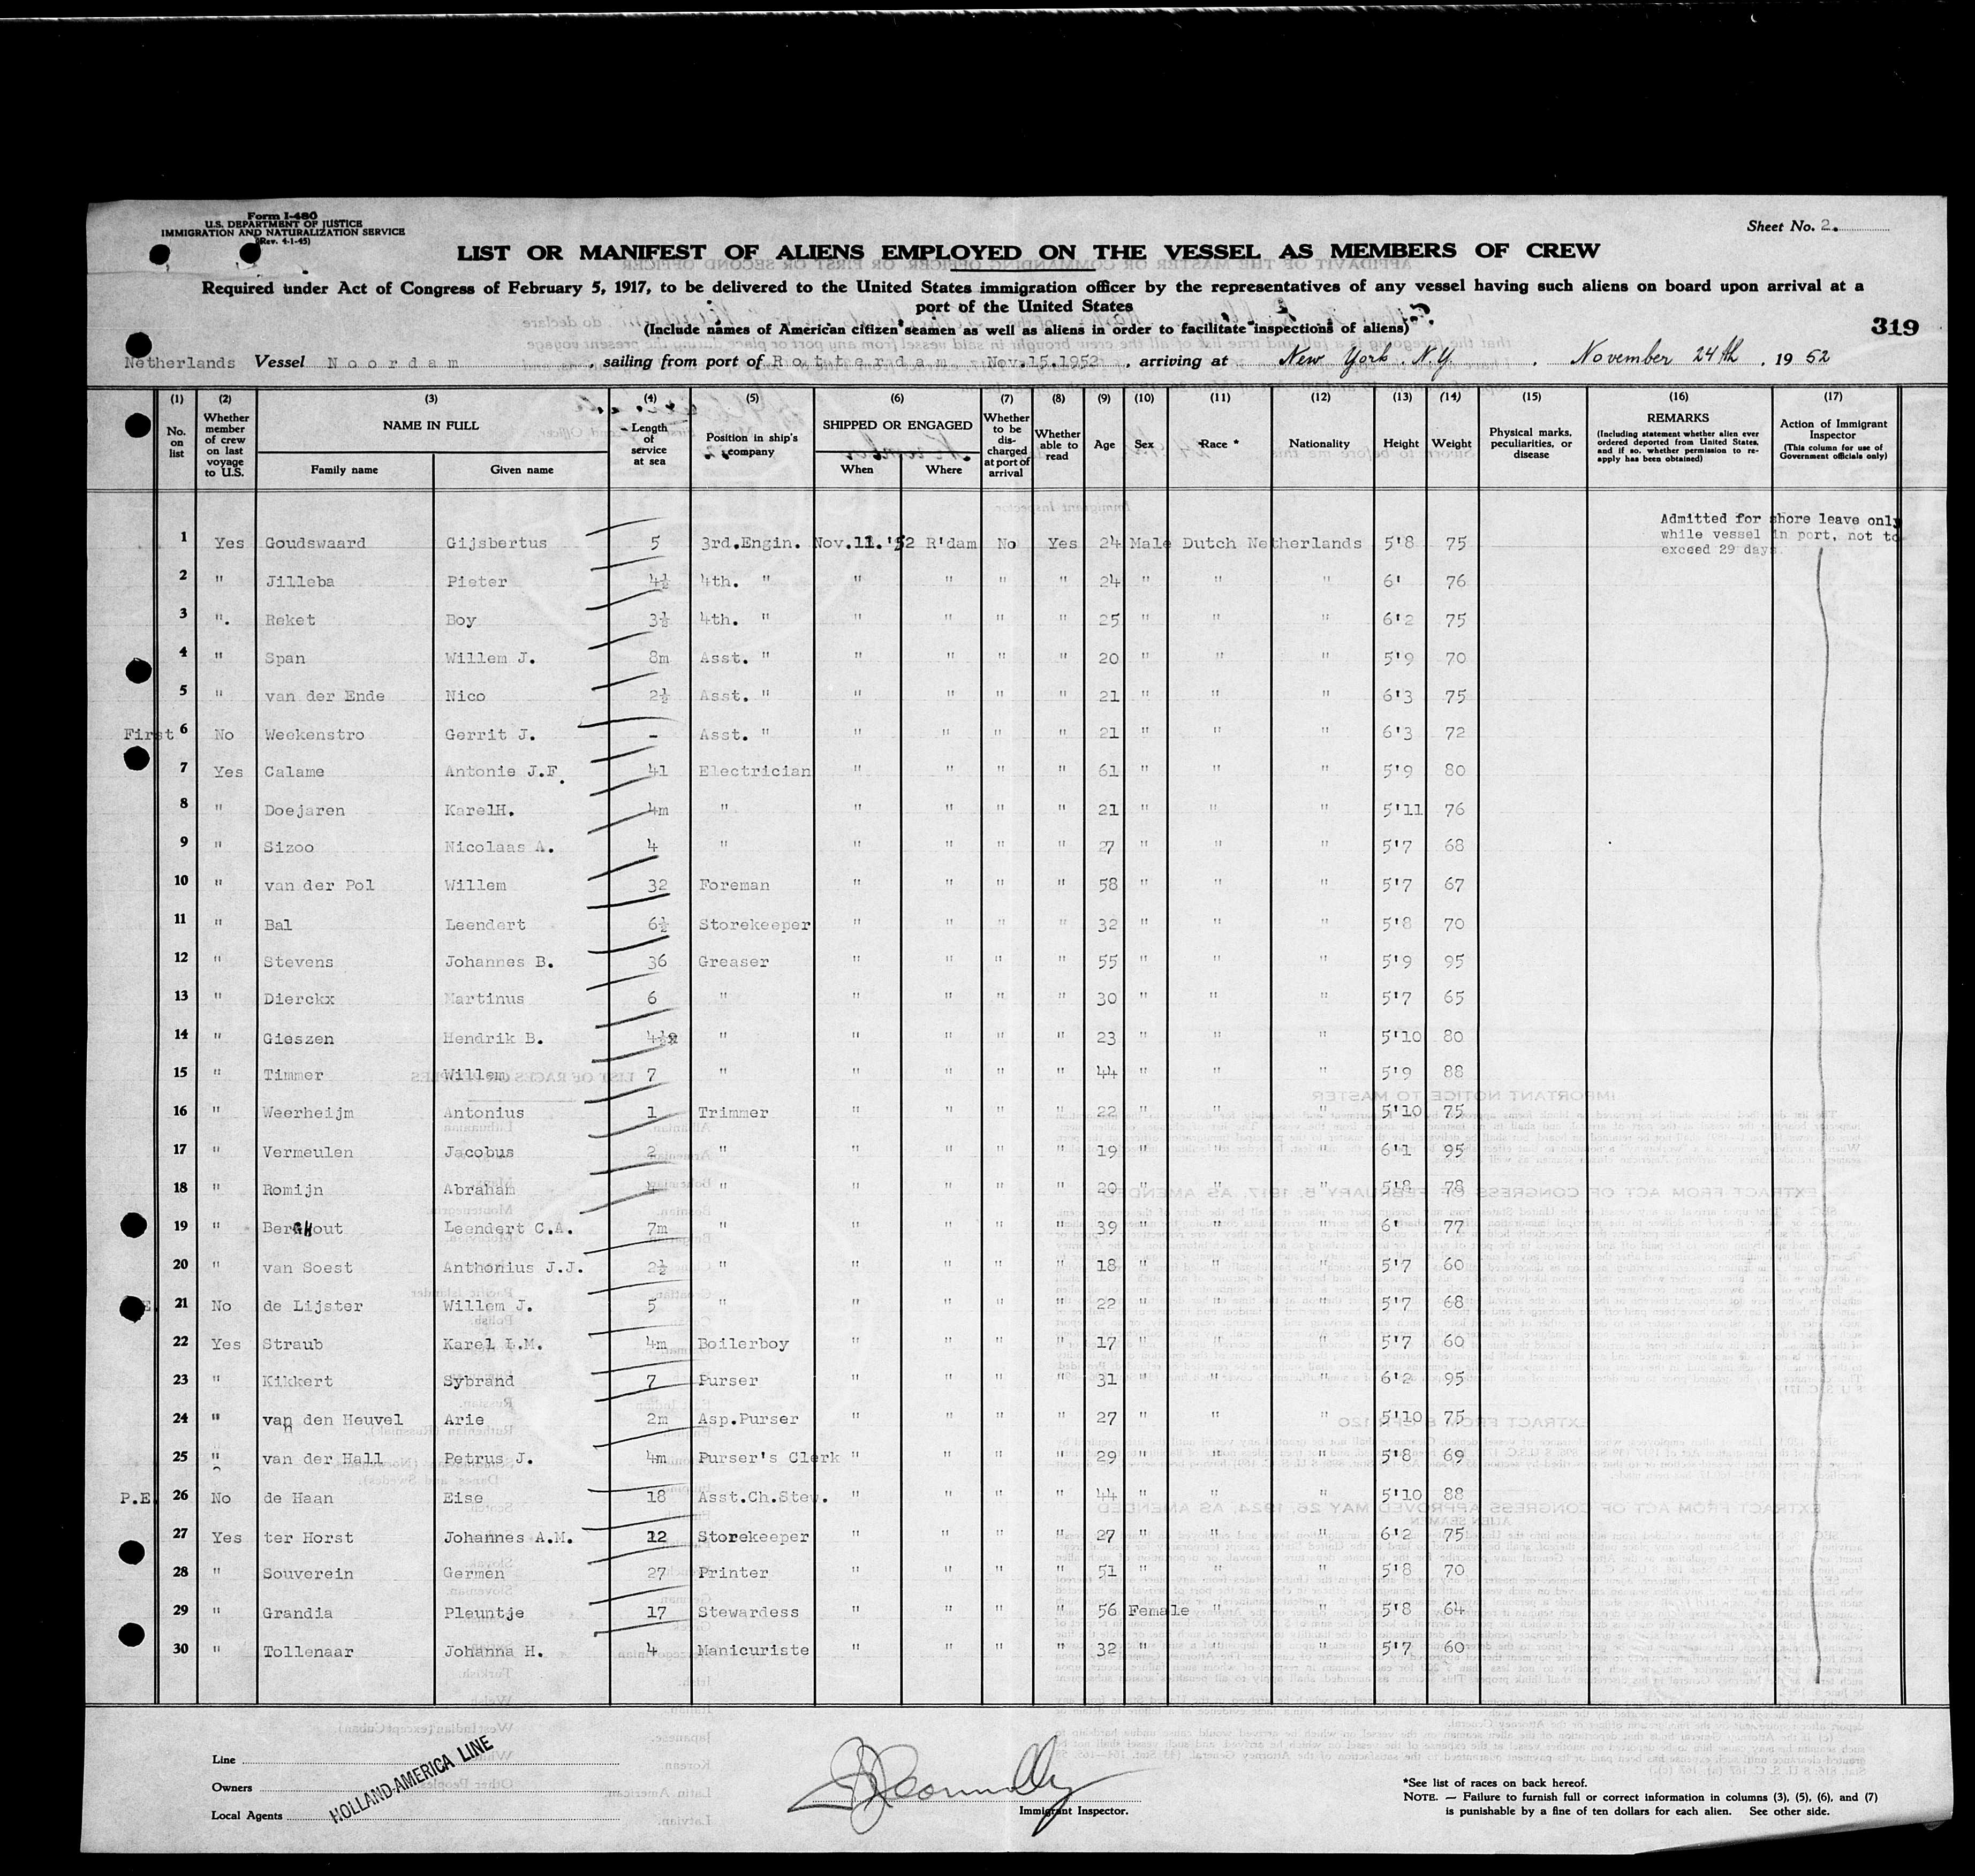 Form I-480
U.S. DEPARTMENT OF JUSTICE
IMMIGRATION AND NATURALIZATION SERVICE
(Rev. 4-1-45)
Sheet No. 2.
LIST OR MANIFEST OF ALIENS EMPLOYED ON THE VESSEL AS MEMBERS OF CREW
Required under Act of Congress of February 5, 1917, to be delivered to the United States immigration officer by the representatives of any vessel having such aliens on board upon arrival at a
port of the United States
(Include names of American citizen seamen as well as aliens in order to facilitate inspections of aliens)
319
Netherlands Vessel Noordam, sailing from port of Rotterdam Nov.15.1952, arriving at New York. N.Y. November 24th, 1952
(1) No. on list
(2) Whether member of crew on last voyage to U.S.
(3) NAME IN FULL Family name Given name
(4) Length of service at sea
(5) Position in ship's company
(6) SHIPPED OR ENGAGED When Where
(7) Whether to be discharged at port of arrival
(8) Whether able to read
(9) Age
(10) Sex
(11) Race *
(12) Nationality
(13) Height
(14) Weight
(15) Physical marks, peculiarities, or disease
(16) REMARKS (Including statement whether alien ever ordered deported from United States, and if so, whether permission to re-apply has been obtained)
(17) Action of Immigrant Inspector (This column for use of Government officials only)
Admitted for shore leave only
while vessel in port, not to
exceed 29 days.
1 Yes Goudswaard Gijsbertus 5 3rd.Engin. Nov.11.'52 R'dam No Yes 24 Male Dutch Netherlands 5'8 75
2 " Jilleba Pieter 4½ 4th. " " " " " 24 " " " 6' 76
3 ". Reket Boy 3½ 4th. " " " " " 25 " " " 6'2 75
4 " Span Willem J. 8m Asst. " " " " " 20 " " " 5'9 70
5 " van der Ende Nico 2½ Asst. " " " " " 21 " " " 6'3 75
First 6 No Weekenstro Gerrit J. - Asst. " " " " " 21 " " " 6'3 72
7 Yes Calame Antonie J.F. 41 Electrician " " " " 61 " " " 5'9 80
8 " Doejaren KarelH. 4m " " " " " 21 " " " 5'11 76
9 " Sizoo Nicolaas A. 4 " " " " " 27 " " " 5'7 68
10 " van der Pol Willem 32 Foreman " " " " 58 " " " 5'7 67
11 " Bal Leendert 6½ Storekeeper " " " " 32 " " " 5'8 70
12 " Stevens Johannes B. 36 Greaser " " " " 55 " " " 5'9 95
13 " Dierckx Martinus 6 " " " " " 30 " " " 5'7 65
14 " Gieszen Hendrik B. 4½ " " " " " 23 " " " 5'10 80
15 " Timmer Willem 7 " " " " " 44 " " " 5'9 88
16 " Weerheijm Antonius 1 Trimmer " " " " 22 " " " 5'10 75
17 " Vermeulen Jacobus 2 " " " " " 19 " " " 6'1 95
18 " Romijn Abraham 4 " " " " " 20 " " " 5'8 78
19 " Berghout Leendert C.A. 7m " " " " " 39 " " " 6' 77
20 " van Soest Anthonius J.J. 2½ " " " " " 18 " " " 5'7 60
21 No de Lijster Willem J. 5 " " " " " 22 " " " 5'7 68
22 Yes Straub Karel L.M. 4m Boilerboy " " " " 17 " " " 5'7 60
23 " Kikkert Sybrand 7 Purser " " " " 31 " " " 6'2 95
24 " van den Heuvel Arie 2m Asp.Purser " " " " 27 " " " 5'10 75
25 " van der Hall Petrus J. 4m Purser's Clerk " " " " 29 " " " 5'8 69
P.E. 26 No de Haan Eise 18 Asst.Ch.Stew. " " " " 44 " " " 5'10 88
27 Yes ter Horst Johannes A.M. 12 Storekeeper " " " " 27 " " " 6'2 75
28 " Souverein Germen 27 Printer " " " " 51 " " " 5'8 70
29 " Grandia Pleuntje 17 Stewardess " " " " 56 Female " " 5'8 64
30 " Tollenaar Johanna H. 4 Manicuriste " " " " 32 " " " 5'7 60
Line
Owners
Local Agents
HOLLAND-AMERICA LINE
Immigrant Inspector.
*See list of races on back hereof.
NOTE. — Failure to furnish full or correct information in columns (3), (5), (6), and (7)
is punishable by a fine of ten dollars for each alien. See other side.